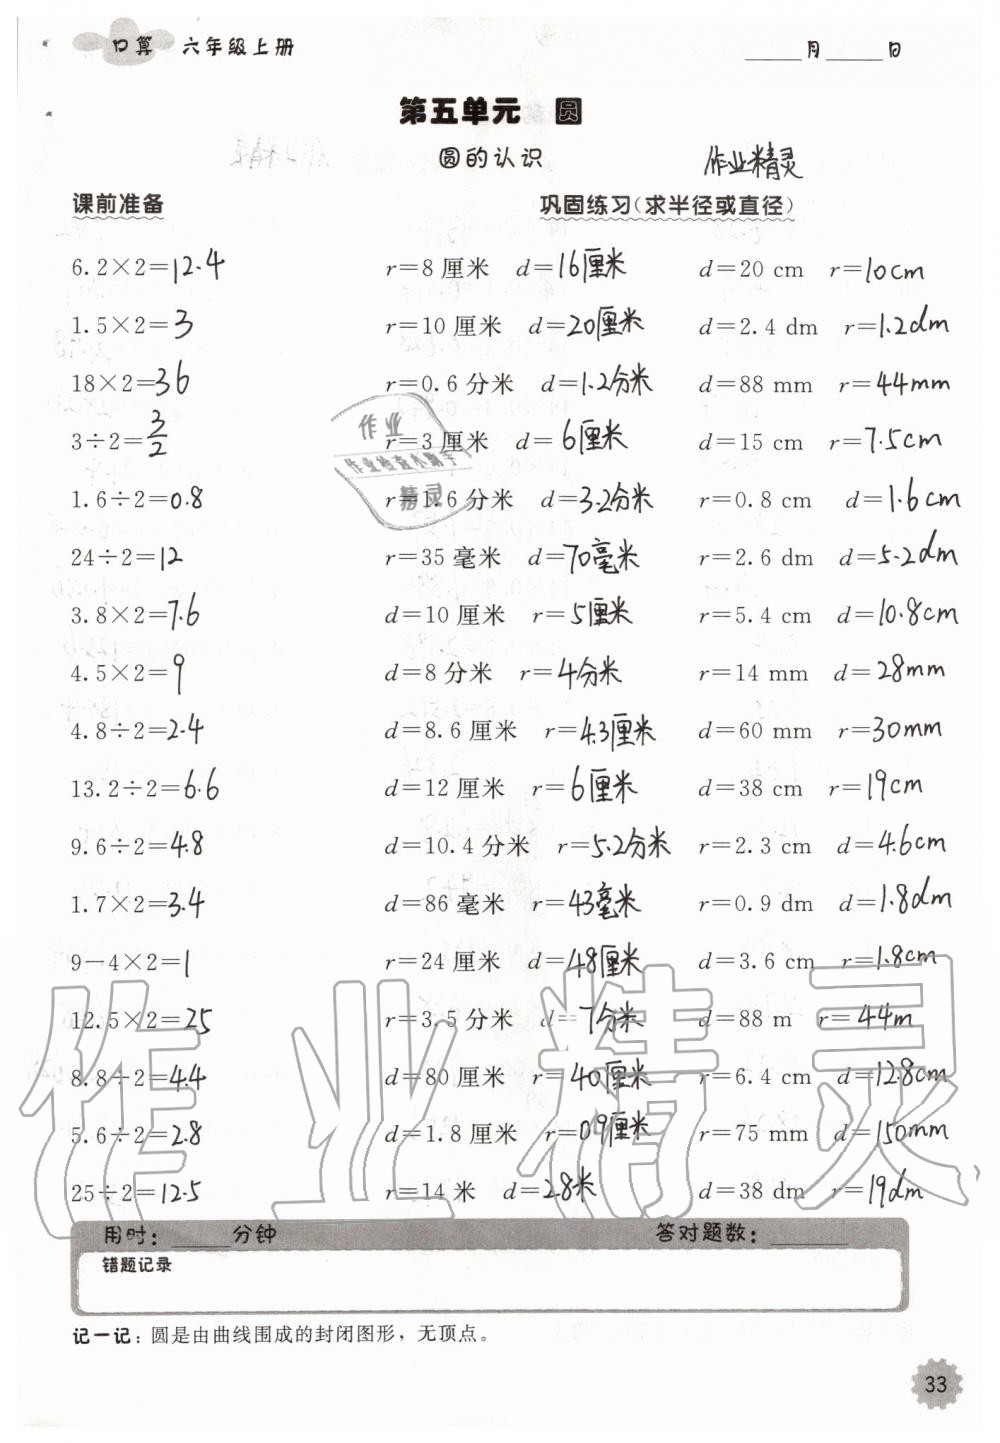 口算 六年级上册 ____月____日
第五单元 圆
圆的认识 作业精灵
课前准备 巩固练习(求半径或直径)
6.2×2=12.4 r=8厘米 d=16厘米 d=20 cm r=10cm
1.5×2=3 r=10厘米 d=20厘米 d=2.4 dm r=1.2dm
18×2=36 r=0.6分米 d=1.2分米 d=88 mm r=44mm
3÷2=3/2 r=3厘米 d=6厘米 d=15 cm r=7.5cm
1.6÷2=0.8 r=1.6分米 d=3.2分米 r=0.8 cm d=1.6cm
24÷2=12 r=35毫米 d=70毫米 r=2.6 dm d=5.2dm
3.8×2=7.6 d=10厘米 r=5厘米 r=5.4 cm d=10.8cm
4.5×2=9 d=8分米 r=4分米 r=14 mm d=28mm
4.8÷2=2.4 d=8.6厘米 r=4.3厘米 d=60 mm r=30mm
13.2÷2=6.6 d=12厘米 r=6厘米 d=38 cm r=19cm
9.6÷2=4.8 d=10.4分米 r=5.2分米 r=2.3 cm d=4.6cm
1.7×2=3.4 d=86毫米 r=43毫米 r=0.9 dm d=1.8dm
9-4×2=1 r=24厘米 d=48厘米 d=3.6 cm r=1.8cm
12.5×2=25 r=3.5分米 d=7分米 d=88 m r=44m
8.8÷2=4.4 d=80厘米 r=40厘米 r=6.4 cm d=12.8cm
5.6÷2=2.8 d=1.8厘米 r=0.9厘米 r=75 mm d=150mm
25÷2=12.5 r=14米 d=28米 d=38 dm r=19dm
作业
作业检查小助手
精灵
作业精灵
用时：____分钟 答对题数：____
错题记录
记一记：圆是由曲线围成的封闭图形，无顶点。
33